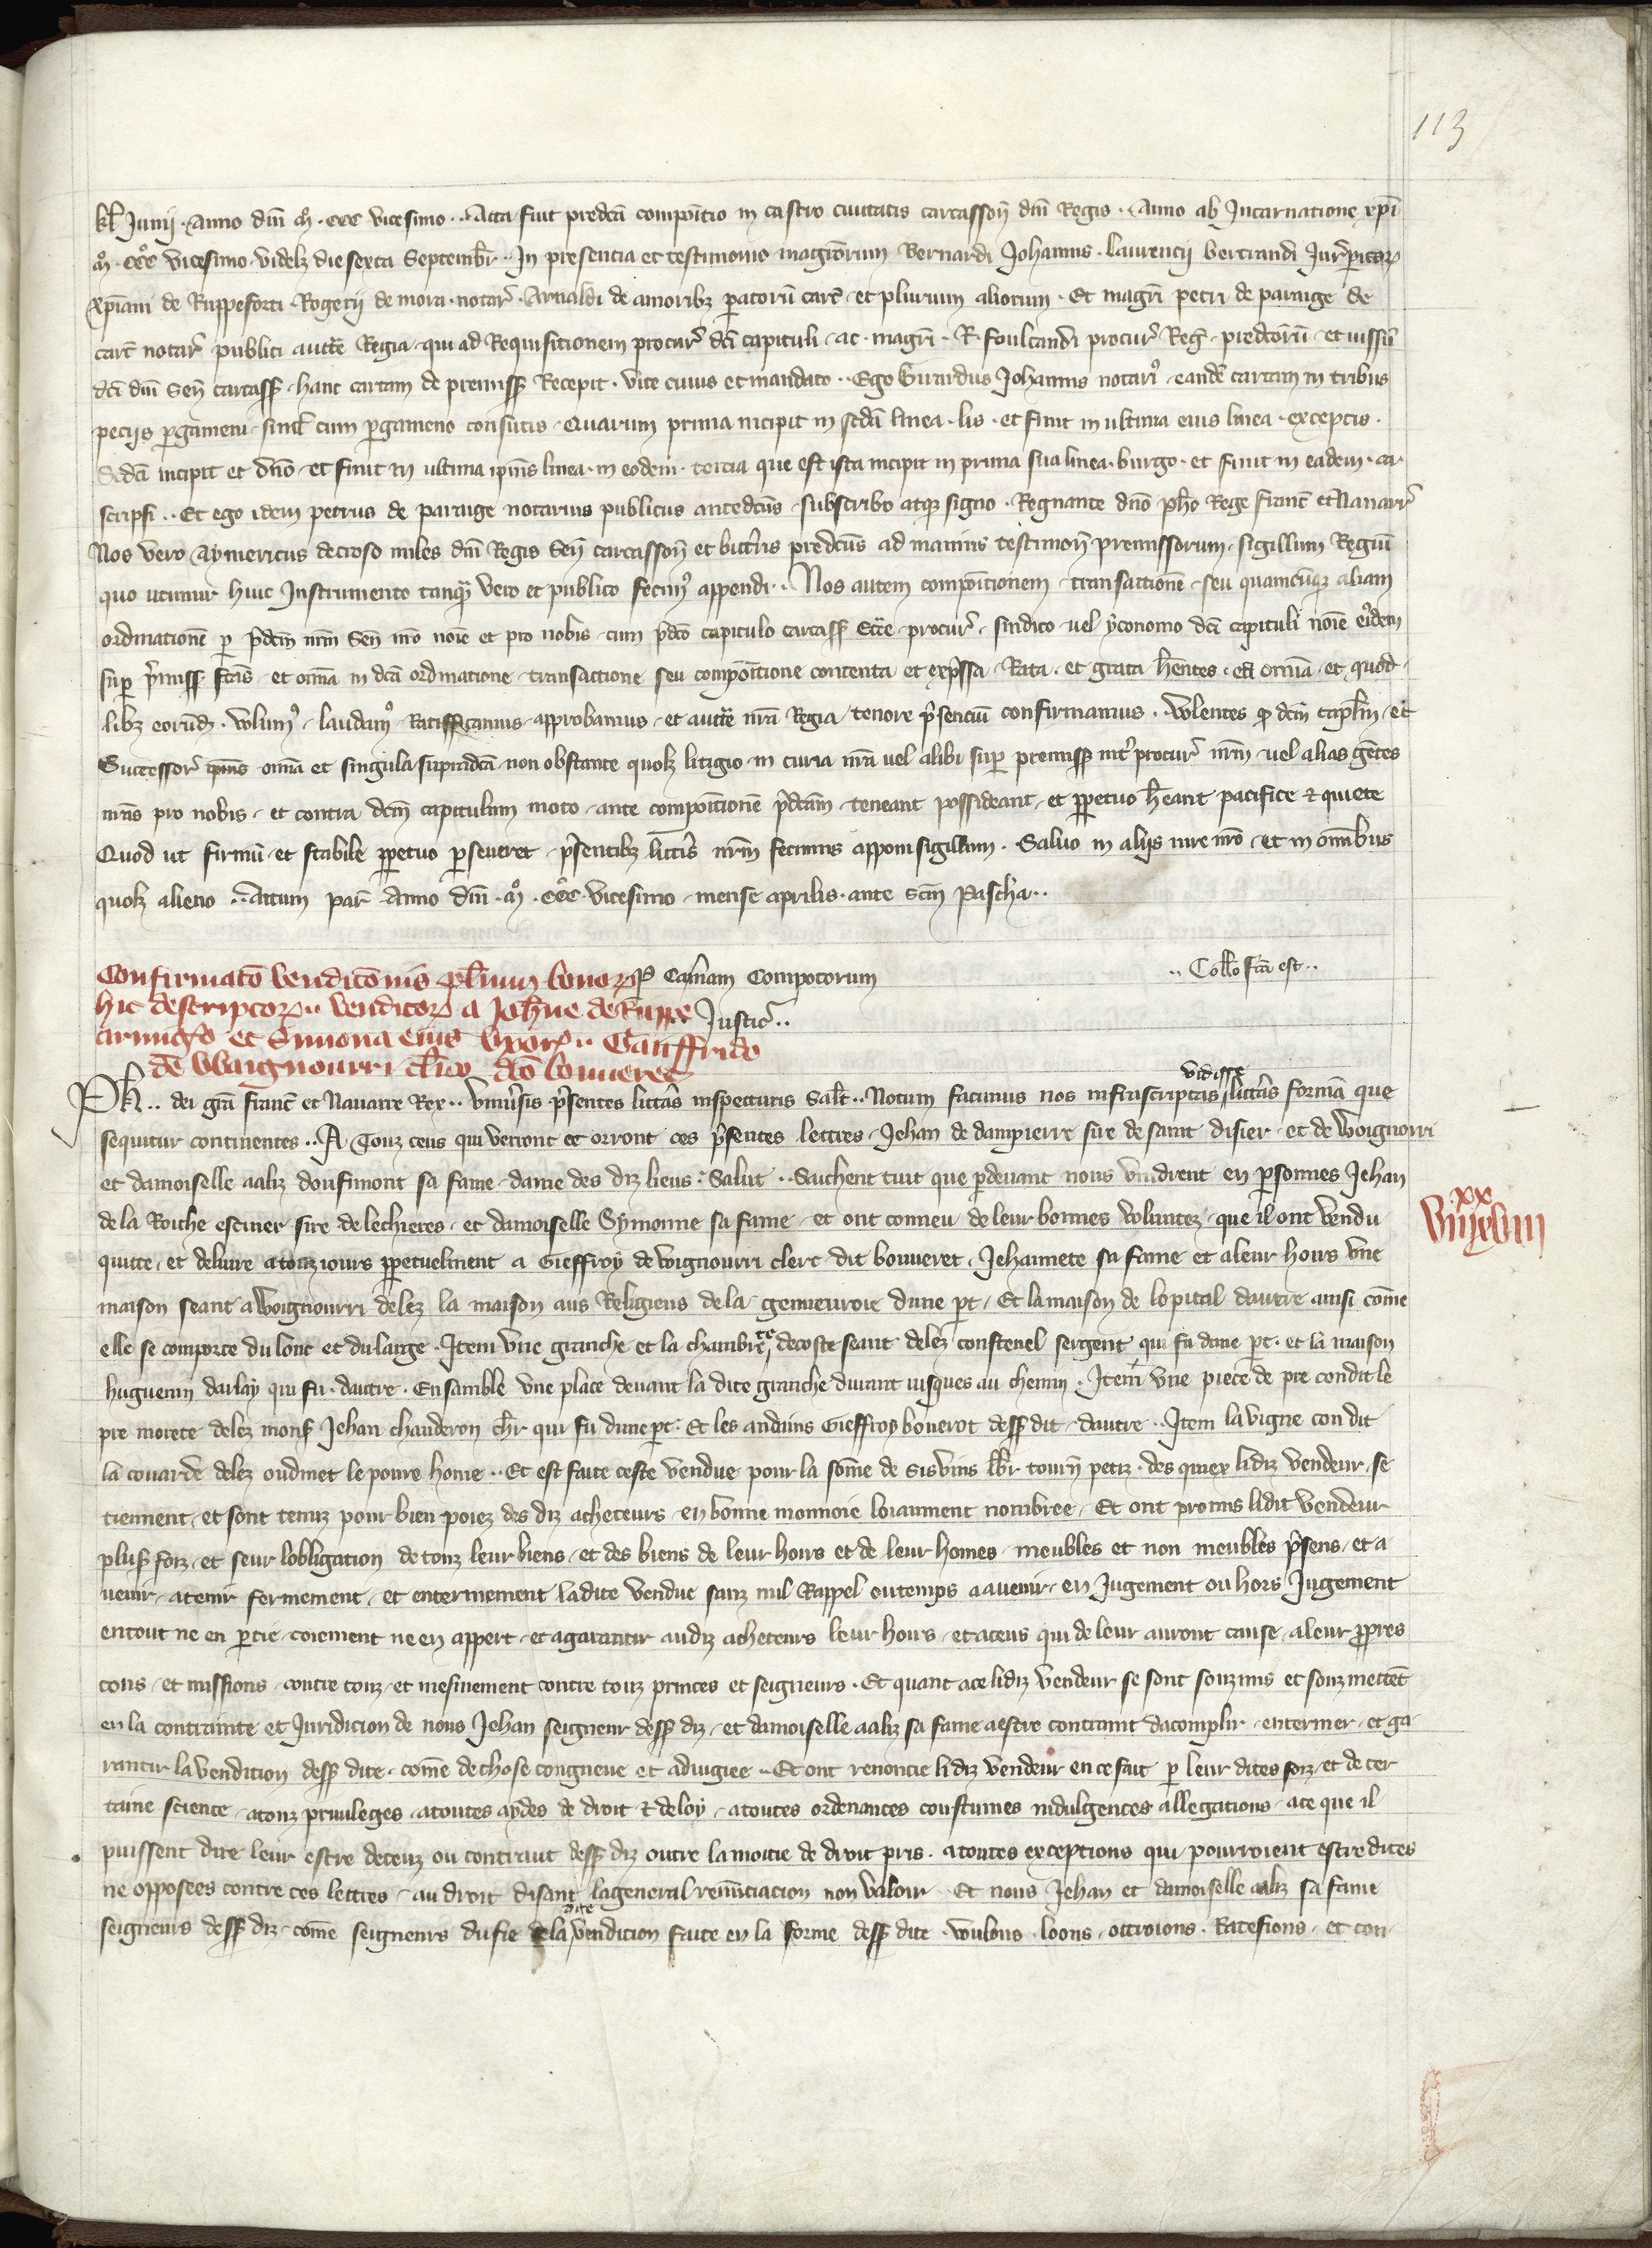 113
kl Junij . Anno dnī .mº. ccc vicesimo .. Acta fuit predcā compoītio in castro civitatis carcassoñ dnī Regis . Anno ab Incarnatione xpī
.mº. cccº vicesimo . videlz die sexta Septembr̄ . In presencia et testimonio magr̄orum Bernardi Johannis . laurencij bertrandi Jur̄peritor
xpīani de Ruppeforti . Rogerij de mora . notar̄ . Arnaldi de amoribz patorū carc̄ . et plurium aliorum . Et magr̄i petri de parage de
carc̄ notar̄ publici auct̄e Regia . qui ad Requisitionem procur̄ dcī capituli . ac . magr̄i . R . foulcandi procur̄ Reg̃ . predcōrū . et iussū
dcī dnī Señ carcass̄ . hanc cartam de premiss̄ Recepit . vice cuius et mandato .. Ego Girardus Johannis notariꝰ . eandē cartam in tribus
pecijs pergameni . simul cum pergameno consutis . Quarum prima incipit in scdā linea . lis . et finit in ultima eius linea . exceptis .
Scdā incipit et dnō . et finit in ultima ipīus linea . in eodem . tercia que est ista incipit in prima sua linea . burgo . et finit in eadem . ca
scripsi .. Et ego idem petrus de parage notarius publicus antedcūs . subscribo atqz signo . Regnante dnō phō Rege franc̄ et Navarr̄
Nos vero Aymericus decroso miles dnī Regis Señ carcassoñ et bitt̄ris predcūs ad maius testimoñ premissorum . sigillum Regiū
quo utimur huic Instrumento tanqz vero et publico fecimꝰ appendi .. Nos autem compoītionem . transactionē . seu quamcūqz aliam
ordinationē per p̄dcm nrm Señ nrō noīe et pro nobis . cum p̄dcō capitulo carcass̄ Ecc̄e . procur̄ . sindico . vel yconomo dcī capituli noīe eiꝰdem
super p̄miss̄ fcās . et omīa in dcā ordinatione . transactione seu compoītione contenta et exp̄ssa . Rata . et grata h̄entes . ea omīa . et quod
libz eorūdz . volumꝰ . laudamꝰ . Ratifficamus . approbamus . et auct̄e nrā Regia . tenore p̄senciū confirmamus . Volentes q̄ dcm̄ capl̄m . et
Successor̄ ipīus omīa et singula supradcā . non obstante quolz litigio . in curia nrā vel alibi super premiss̄ int̄ procur̄ nrm̄ . vel alias gentes
nrās pro nobis . et contra dcm̄ capitulum moto . ante compoītionē p̄dcām . teneant possideant . et perpetuo h̄eant pacifice et quiete
Quod ut firmū et stabile perpetuo perseveret . p̄sentibz litt̄is nrm̄ fecimus apponi sigillum . Salvo in alijs iure nrō . et in omībus
quolz alieno .. Actum par̄ Anno dnī .mº. cccº. vicesimo . mense aprilis . ante scm̄ Pascha ..
Confirmatō vendicōnis pl̄ium bonor per Cam̄am Compotorum .. Coll̄o fcā est ..
hic descriptor .. venditor a Joh̄ne de Ruppe Justic̄ ..
armig̃o et Simona eius uxor̄ .. Gauffrido
de Waignourri cl̄ico dcō bouveret
Ph .. dei grā franc̄ et Navarre Rex .. Univ̄sis p̄sentes litt̄as inspecturis Sal̄t .. Notum facimus nos infrascriptas vidisse litt̄as formā que
sequitur continentes .. A Touz ceus qui verront et orront ces p̄sentes lettres . Jehan de dampierre sire de saint disier . et de Woignorri
et damoiselle aaliz doufimont sa fame . dame des diz lieus : Salut .. Sachent tuit que pardevant nous vindrent en personnes Jehan
de la Roiche escuier sire de lechieres . et damoiselle Symonne sa fame . et ont conneu de leur bonnes voluntez . que il ont vendu
xx
quitte . et delivre atouziours perpetuelment a Gieffroy de woignourri clerc dit bouveret . Jehannete sa fame et aleur hoirs une
maison seant a woignourri delez la maison aus Religieus de la genneuroie dune part . Et la maison de lopital dautre ainsi cōme
elle se comporte du lonc et du large . Item une granche et la chambrete decoste seant delez constenel sergent qui fu dune part . et la maison
huguenin darlay qui fu . dautre . Ensamble une place devant la dite granche durant iusques au chemin . Item une piece de pre condit le
pre morete delez mons̄ Jehan chauderon chl̄r qui fu dune part . Et les andains Gieffroy boverot dess̄ dit . dautre .. Item la vigne con dit
la couarde delez oudinet le poure home .. Et est faite ceste vendue pour la sōme de sisvins lb̄r tourñ petiz . des quiex lidiz vendeur se
tiennent . et sont tenuz pour bien poiez des diz acheteurs . en bonne monnoie loiaument nombree . Et ont promis lidit vendeur
plus̄ foiz . et seur lobligation de touz leur biens . et des biens de leur hoirs et de leur homes . meubles et non meubles p̄sens . et a
venir . atenir fermement . et enterinement ladite vendue sanz nul Rappel ou temps aavenir . en Jugement ou hors Jugement
entout ne en partie . coiement ne en appert . et agarantir audiz acheteurs leur hoirs . et aceus qui de leur auront cause . aleur propres
cous . et missions . contre touz . et mesmement contre touz princes et seigneurs . Et quant ace lidiz vendeur se sont souzmis et souzmettēt
en la contrainte et Juridicion de nous Jehan seigneur dess̄ diz . et damoiselle aaliz sa fame aestre contraint dacomplir . enteriner . et ga
rantir la vendition dess̄ dite . cōme de chose congneue et adiugiee .. Et ont renoncie lidiz vendeur en ce fait par leur dites foiz . et de cer
taine science . atouz privileges . atoutes aydes de droit et deloy . atoutes ordenances coustumes indulgences allegations . ace que il
puissent dire leur estre deceuz ou contraut dess̄ diz outre la moitie de droit pris . atoutes exceptions qui pourroient estre dites
ne opposees contre ces lettres . au droit disant lageneral renūciacion non valoir . Et nous Jehan et damoiselle aaliz sa fame
seigneurs dess̄ diz . cōme seigneurs du fie de la dite vendition faite en la forme dess̄ dite . voulons . loons . ottroions . Ratefions . et con